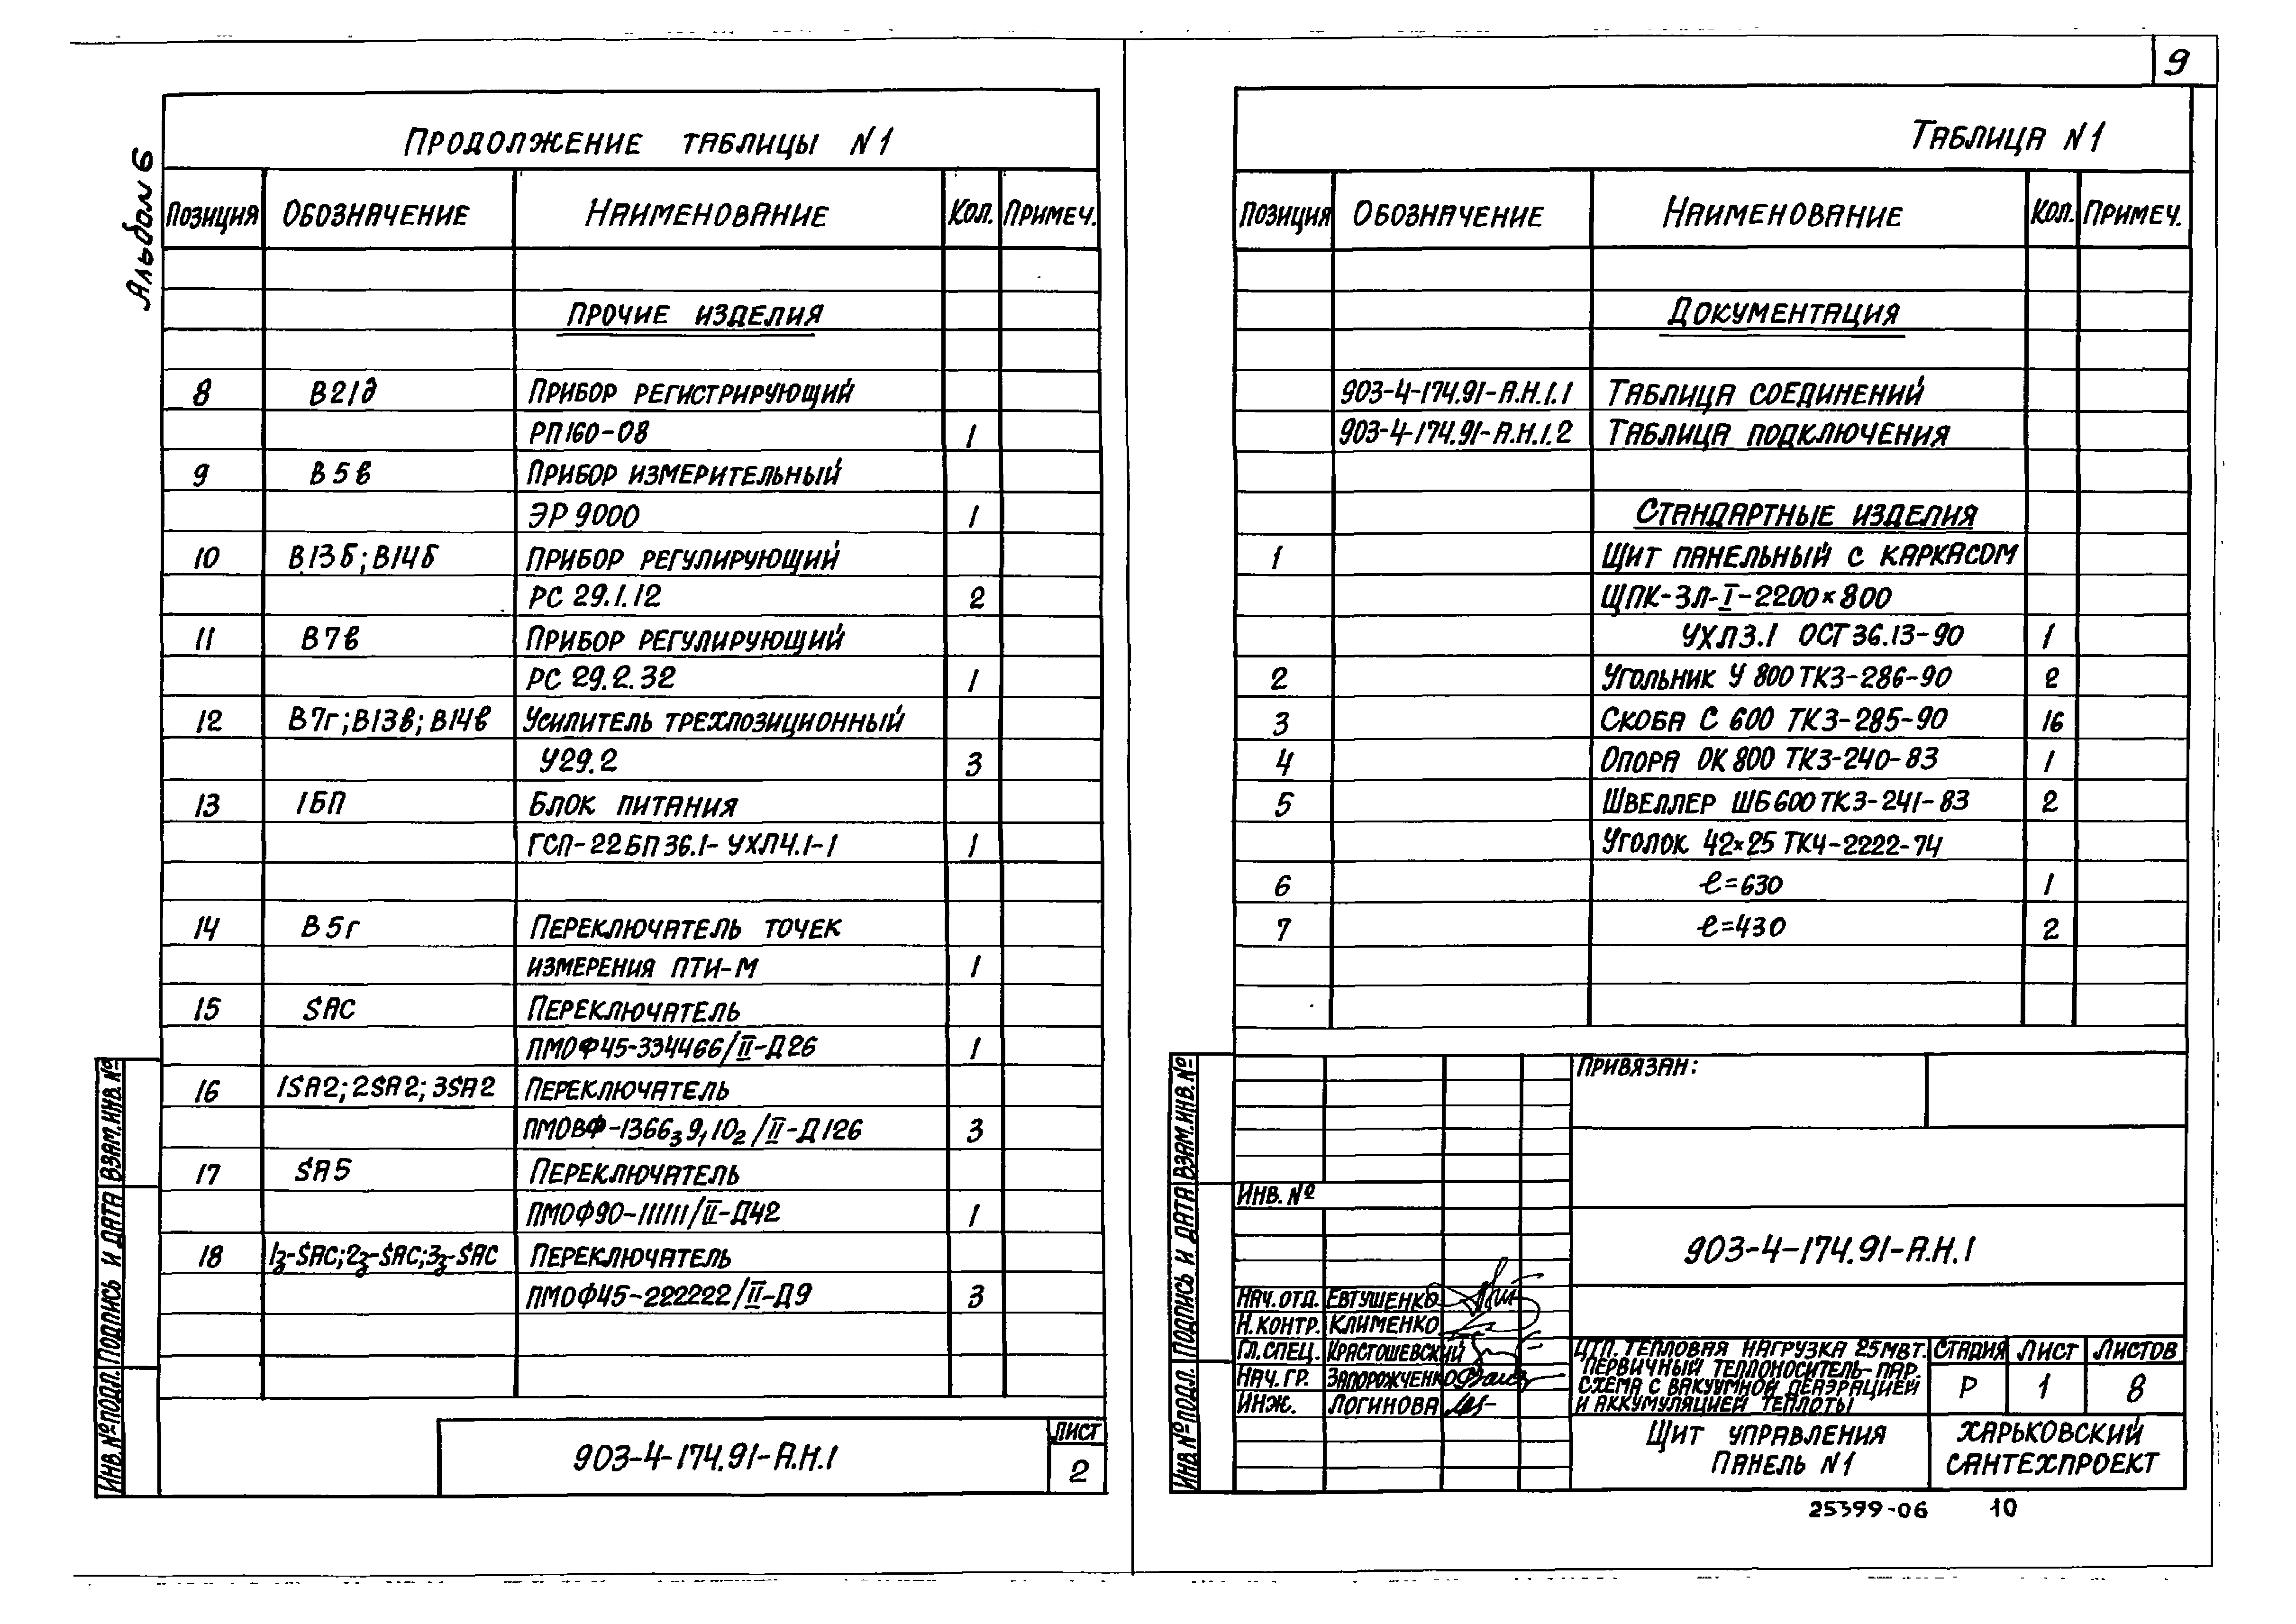 9
Альбом 6
Продолжение таблицы N1
Позиция Обозначение Наименование Кол. Примеч.
Прочие изделия
8 В21д Прибор регистрирующий
РП160-08 1
9 В5в Прибор измерительный
ЭР 9000 1
10 В13б; В14б Прибор регулирующий
РС 29.1.12 2
11 В7в Прибор регулирующий
РС 29.2.32 1
12 В7г; В13в; В14в Усилитель трехпозиционный
У29.2 3
13 1БП Блок питания
ГСП-22БП36.1-УХЛ4.1-1 1
14 В5г Переключатель точек
измерения ПТИ-М 1
15 SAC Переключатель
ПМОФ45-334466/II-Д26 1
16 1SA2; 2SA2; 3SA2 Переключатель
ПМОВФ-1366₃9₁10₂/II-Д126 3
17 SA5 Переключатель
ПМОФ90-111111/II-Д42 1
18 1з-SAC; 2з-SAC; 3з-SAC Переключатель
ПМОФ45-222222/II-Д9 3
903-4-174.91-А.Н.1
Лист
2
Инв. № подл. Подпись и дата Взам. инв. №
Таблица N1
Позиция Обозначение Наименование Кол. Примеч.
Документация
903-4-174.91-А.Н.1.1 Таблица соединений
903-4-174.91-А.Н.1.2 Таблица подключения
Стандартные изделия
1 Щит панельный с каркасом
ЩПК-3Л-I-2200×800
УХЛ3.1 ОСТ36.13-90 1
2 Угольник У 800 ТК3-286-90 2
3 Скоба С 600 ТК3-285-90 16
4 Опора ОК 800 ТК3-240-83 1
5 Швеллер ШБ600 ТК3-241-83 2
Уголок 42×25 ТК4-2222-74
6 ℓ=630 1
7 ℓ=430 2
Привязан:
Инв. №
903-4-174.91-А.Н.1
Нач. отд. Евтушенко
Н. контр. Клименко
Гл. спец. Красташевский
Нач. гр. Запорожченко
Инж. Логинова
ЦТП. Тепловая нагрузка 25МВт.
Первичный теплоноситель-пар.
Схема с вакуумной деаэрацией
и аккумуляцией теплоты
Стадия Лист Листов
Р 1 8
Щит управления
Панель N1
Харьковский
Сантехпроект
Инв. № подл. Подпись и дата Взам. инв. №
25399-06 10